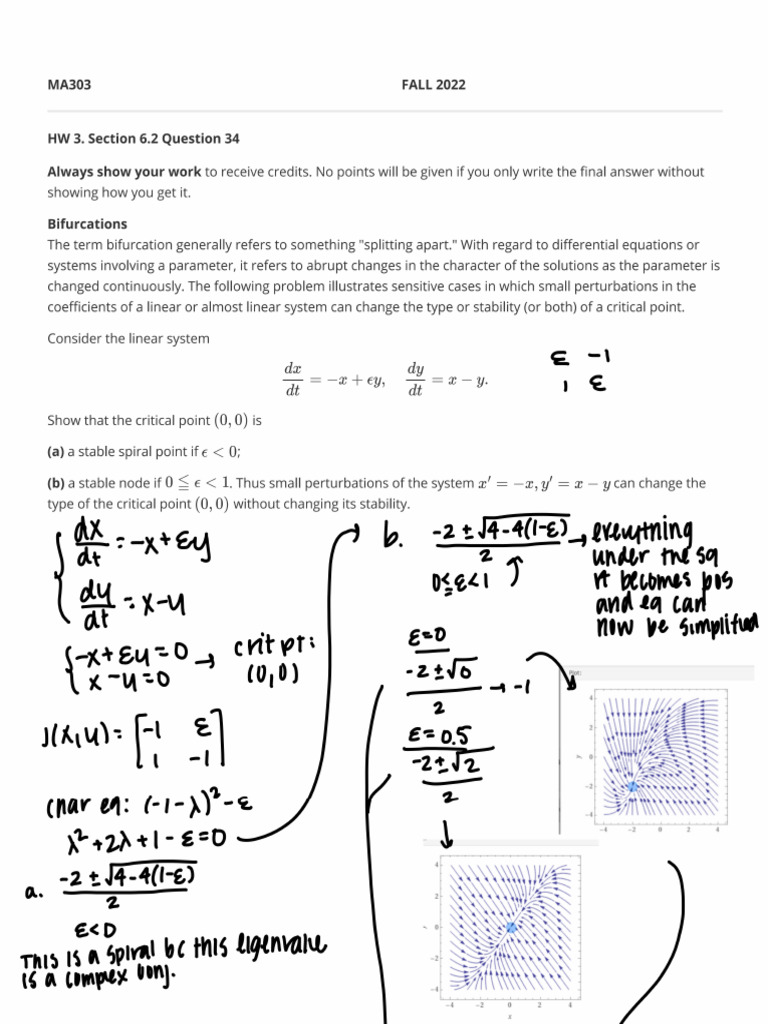 MA303
FALL 2022
HW 3. Section 6.2 Question 34
Always show your work to receive credits. No points will be given if you only write the final answer without
showing how you get it.
Bifurcations
The term bifurcation generally refers to something "splitting apart." With regard to differential equations or
systems involving a parameter, it refers to abrupt changes in the character of the solutions as the parameter is
changed continuously. The following problem illustrates sensitive cases in which small perturbations in the
coefficients of a linear or almost linear system can change the type or stability (or both) of a critical point.
Consider the linear system
dx/dt = −x + ϵy, dy/dt = x − y.
ε -1
1 ε
Show that the critical point (0, 0) is
(a) a stable spiral point if ϵ < 0;
(b) a stable node if 0 ≦ ϵ < 1. Thus small perturbations of the system x′ = −x, y′ = x − y can change the
type of the critical point (0, 0) without changing its stability.
dx/dt = -x+εy
dy/dt = x-y
-x+εy=0 → crit pt:
x-y=0 (0,0)
J(x,y) = [-1 ε
1 -1]
char eq: (-1-λ)²-ε
λ²+2λ+1-ε=0
a. -2±√4-4(1-ε)
2
ε<0
This is a spiral bc this eigenvalue
is a complex conj.
b. -2±√4-4(1-ε) → everything
2
0≤ε<1
under the sq
rt becomes pos
and eq can
now be simplified
ε=0
-2±√0 → -1
2
ε=0.5
-2±√2
2
Plot:
4
2
0
−2
−4
y
−4 −2 0 2 4
4
2
0
−2
−4
y
−4 −2 0 2 4
x